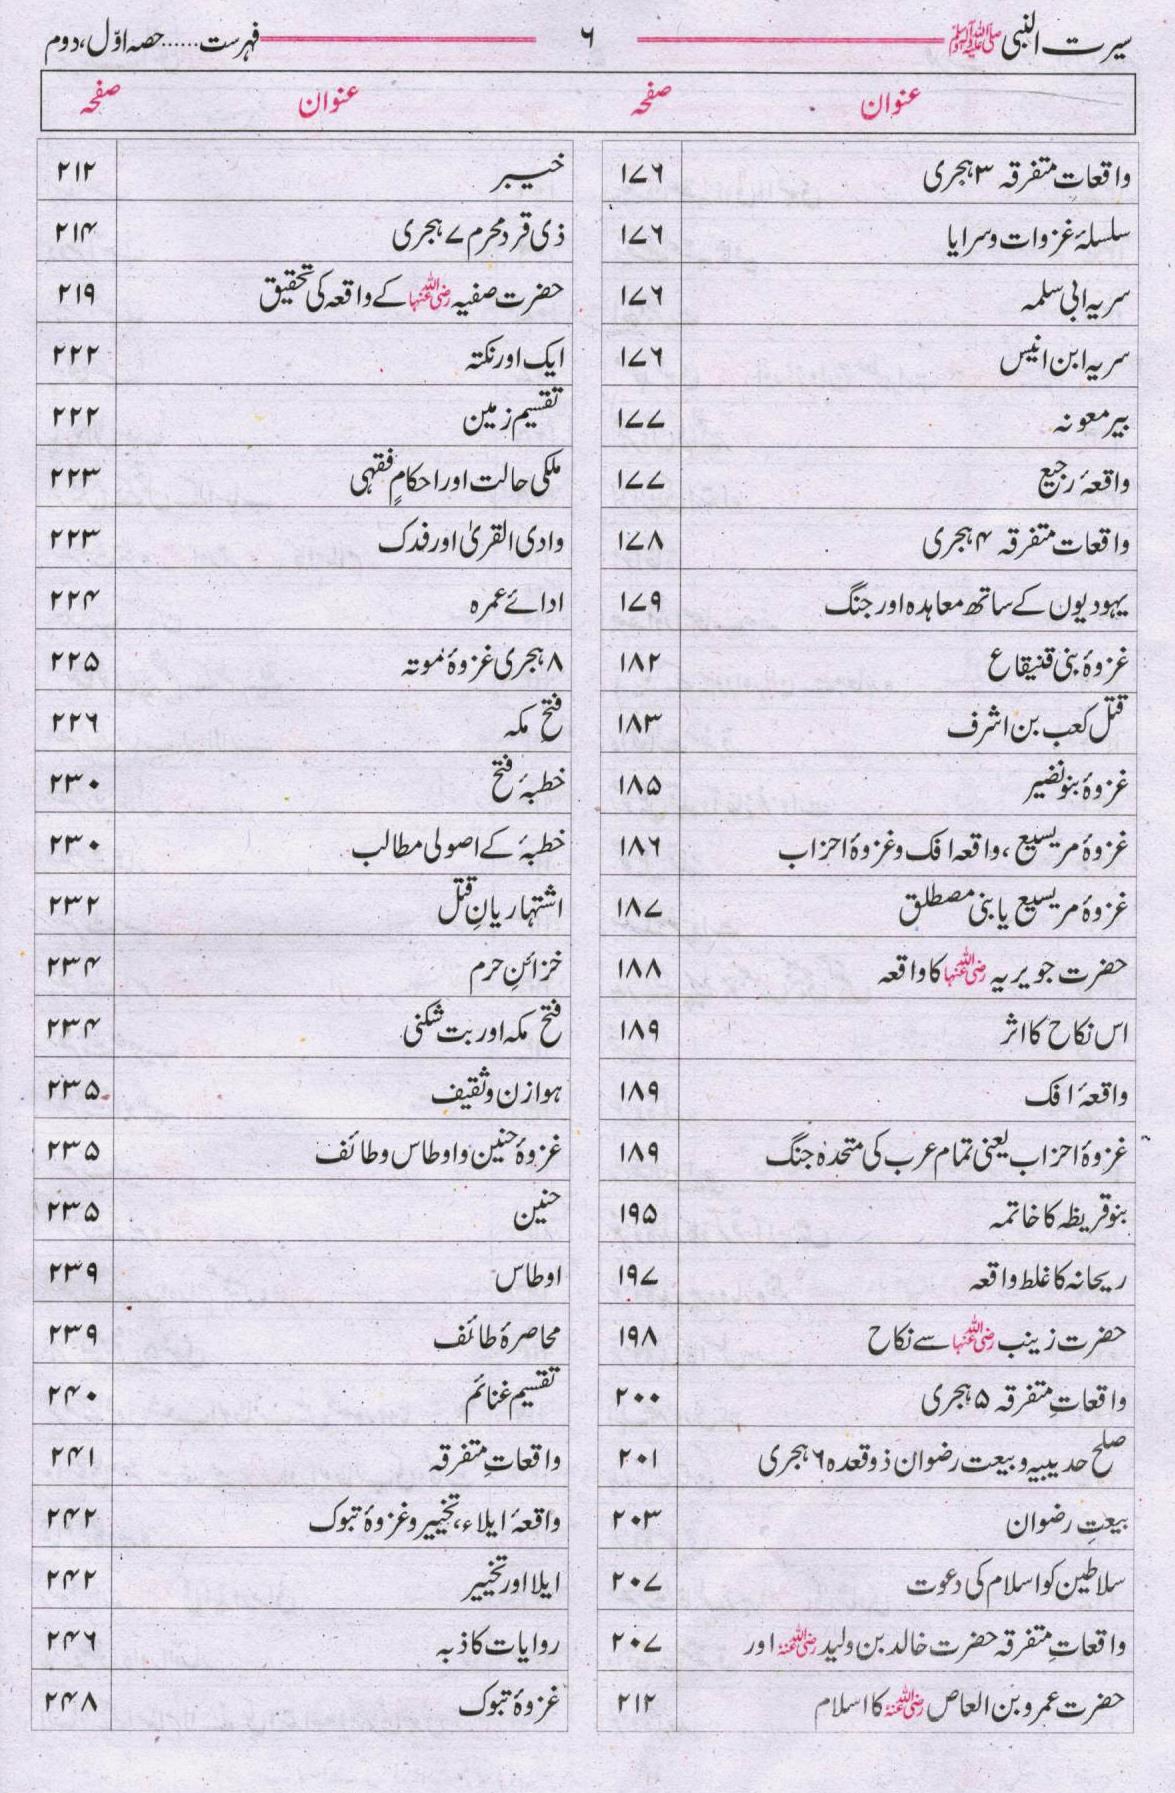 سیرت النبی ﷺ ۶ فہرست......حصہ اوّل، دوم
عنوان صفحہ عنوان صفحہ
واقعات متفرقہ ۳ ہجری ۱۷۶
سلسلۂ غزوات وسرایا ۱۷۶
سریہ ابی سلمہ ۱۷۶
سریہ ابن انیس ۱۷۶
بیر معونہ ۱۷۷
واقعۂ رجیع ۱۷۷
واقعات متفرقہ ۴ ہجری ۱۷۸
یہودیوں کے ساتھ معاہدہ اور جنگ ۱۷۹
غزوۂ بنی قنیقاع ۱۸۲
قتل کعب بن اشرف ۱۸۳
غزوۂ بنو نضیر ۱۸۵
غزوۂ مریسیع، واقعہ افک وغزوۂ احزاب ۱۸۶
غزوۂ مریسیع یا بنی مصطلق ۱۸۷
حضرت جویریہ رضی اللہ عنہا کا واقعہ ۱۸۸
اس نکاح کا اثر ۱۸۹
واقعۂ افک ۱۸۹
غزوۂ احزاب یعنی تمام عرب کی متحدہ جنگ ۱۸۹
بنو قریظہ کا خاتمہ ۱۹۵
ریحانہ کا غلط واقعہ ۱۹۷
حضرت زینب رضی اللہ عنہا سے نکاح ۱۹۸
واقعاتِ متفرقہ ۵ ہجری ۲۰۰
صلح حدیبیہ و بیعت رضوان ذوقعدہ ۶ ہجری ۲۰۱
بیعتِ رضوان ۲۰۳
سلاطین کو اسلام کی دعوت ۲۰۷
واقعاتِ متفرقہ حضرت خالد بن ولید رضی اللہ عنہ اور ۲۰۷
حضرت عمرو بن العاص رضی اللہ عنہ کا اسلام ۲۱۲
خیبر ۲۱۲
ذی قرد محرم ۷ ہجری ۲۱۴
حضرت صفیہ رضی اللہ عنہا کے واقعہ کی تحقیق ۲۱۹
ایک اور نکتہ ۲۲۲
تقسیم زمین ۲۲۲
ملکی حالت اور احکامِ فقہی ۲۲۳
وادی القریٰ اور فدک ۲۲۳
ادائے عمرہ ۲۲۴
۸ ہجری غزوۂ موتہ ۲۲۵
فتحِ مکہ ۲۲۶
خطبۂ فتح ۲۳۰
خطبۂ کے اصولی مطالب ۲۳۰
اشتہاریانِ قتل ۲۳۲
خزائنِ حرم ۲۳۴
فتح مکہ اور بت شکنی ۲۳۴
ہوازن وثقیف ۲۳۵
غزوۂ حنین و اوطاس و طائف ۲۳۵
حنین ۲۳۵
اوطاس ۲۳۹
محاصرۂ طائف ۲۳۹
تقسیم غنائم ۲۴۰
واقعاتِ متفرقہ ۲۴۱
واقعۂ ایلاء، تخییر و غزوۂ تبوک ۲۴۲
ایلا اور تخییر ۲۴۲
روایات کاذبہ ۲۴۶
غزوۂ تبوک ۲۴۸